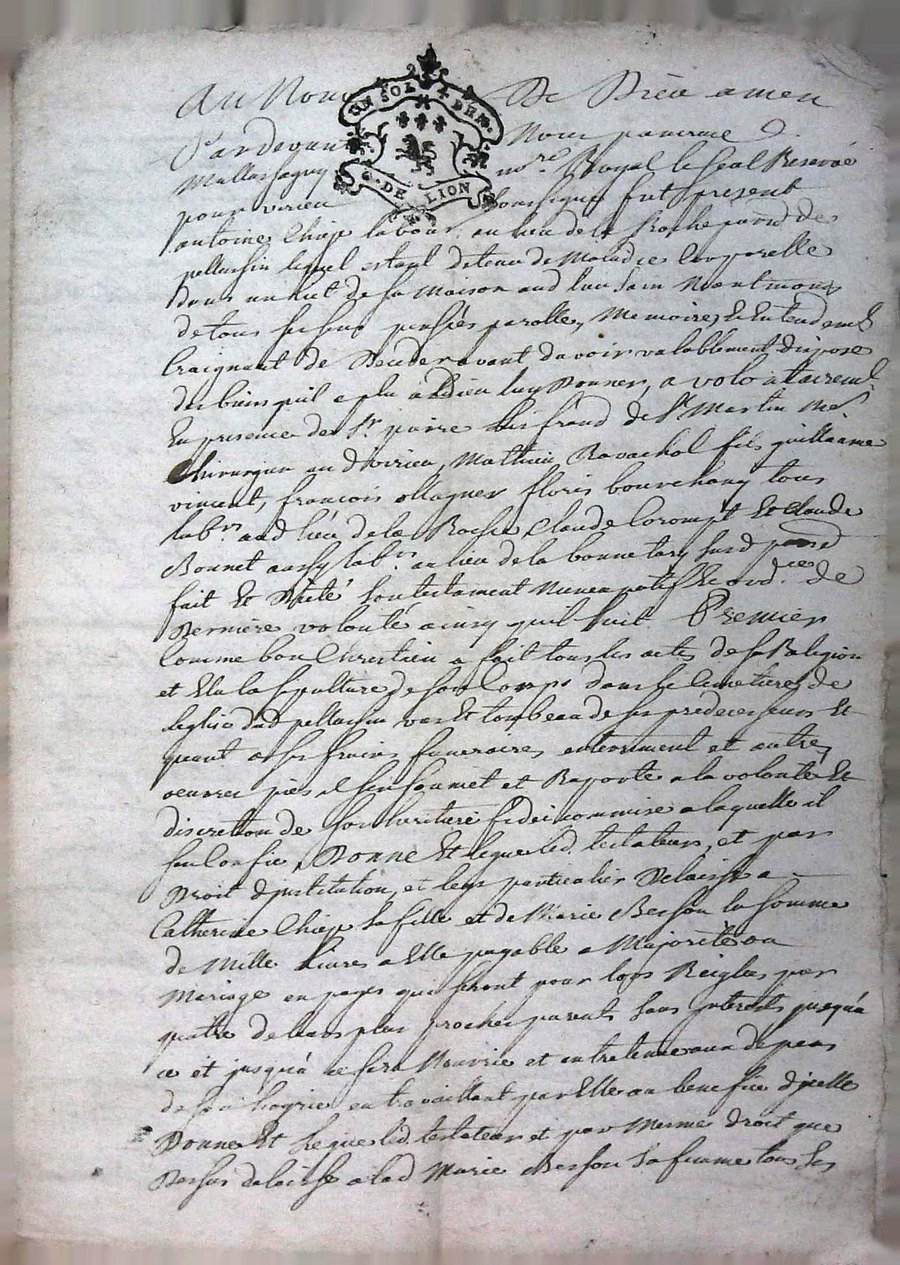 Au Nom De Dieu amen
UN SOL 4 DEN.
G. DE LION
Pardevant Nous
Mallassagny no.re Royal le seal Reservé
pour virieu soussigné fut present
antoine Chiep labour. au lieu de la Roche parr.e de
pellussin lequel estant detenu de Maladie Corporelle
dans un lict de sa Maison aud. lieu sain Neantmoins
de tous ses sens pensées parolle, Memoire, et Entendement
Craignant de deceder avant d'avoir valablement disposé
des biens quil a plu a Dieu luy Donner, a volontairement
En presence de S.r pierre de S.t Martin M.e
Chirurgien aud. virieu, Mathieu Ravachol fils guillaume
vincent, françois ollagner floris bourchany tous
lab.rs aud. lieu de la Roche, Claude Corompt et Claude
Bonnet aussy lab.r au lieu de la susd. parr.e
fait et Dicté son testament Nuncupatif et ord.ce de
Derniere volonté ainsy quil suit Premier
Comme bon Chrestien a fait tous les actes de sa Religion
et Elu la sepulture de son Corps dans le Cimetiere de
leglise dud. pellussin vas et tombeau de ses predecesseurs Et
quant a ses fraix funeraires, enterrement et autres
oeuvres pies il sen soumet et Raporte a la volonté Et
discretion de son heritiere fideicommise a laquelle il
sen Confie, Donne Et legue led. testateur, et par
Droit d'institution, et legs particulier Delaisse a
Catherine Chiep sa fille et de Marie Besson la somme
de Mille livres a Elle payable a Majorité ou
Mariage en payes qui seront pour lors Reiglés par
quatre de leurs plus proches parents sans interests jusqu'a
ce et jusqu'a ce sera Nourrie et entretenue aux depens
de son hoyrie en travaillant par Elle au benefice d'icelle
Donne Et Legue led. testateur et par Mesme droit que
Dessus delaisse a lad. Marie Besson sa femme tous ses